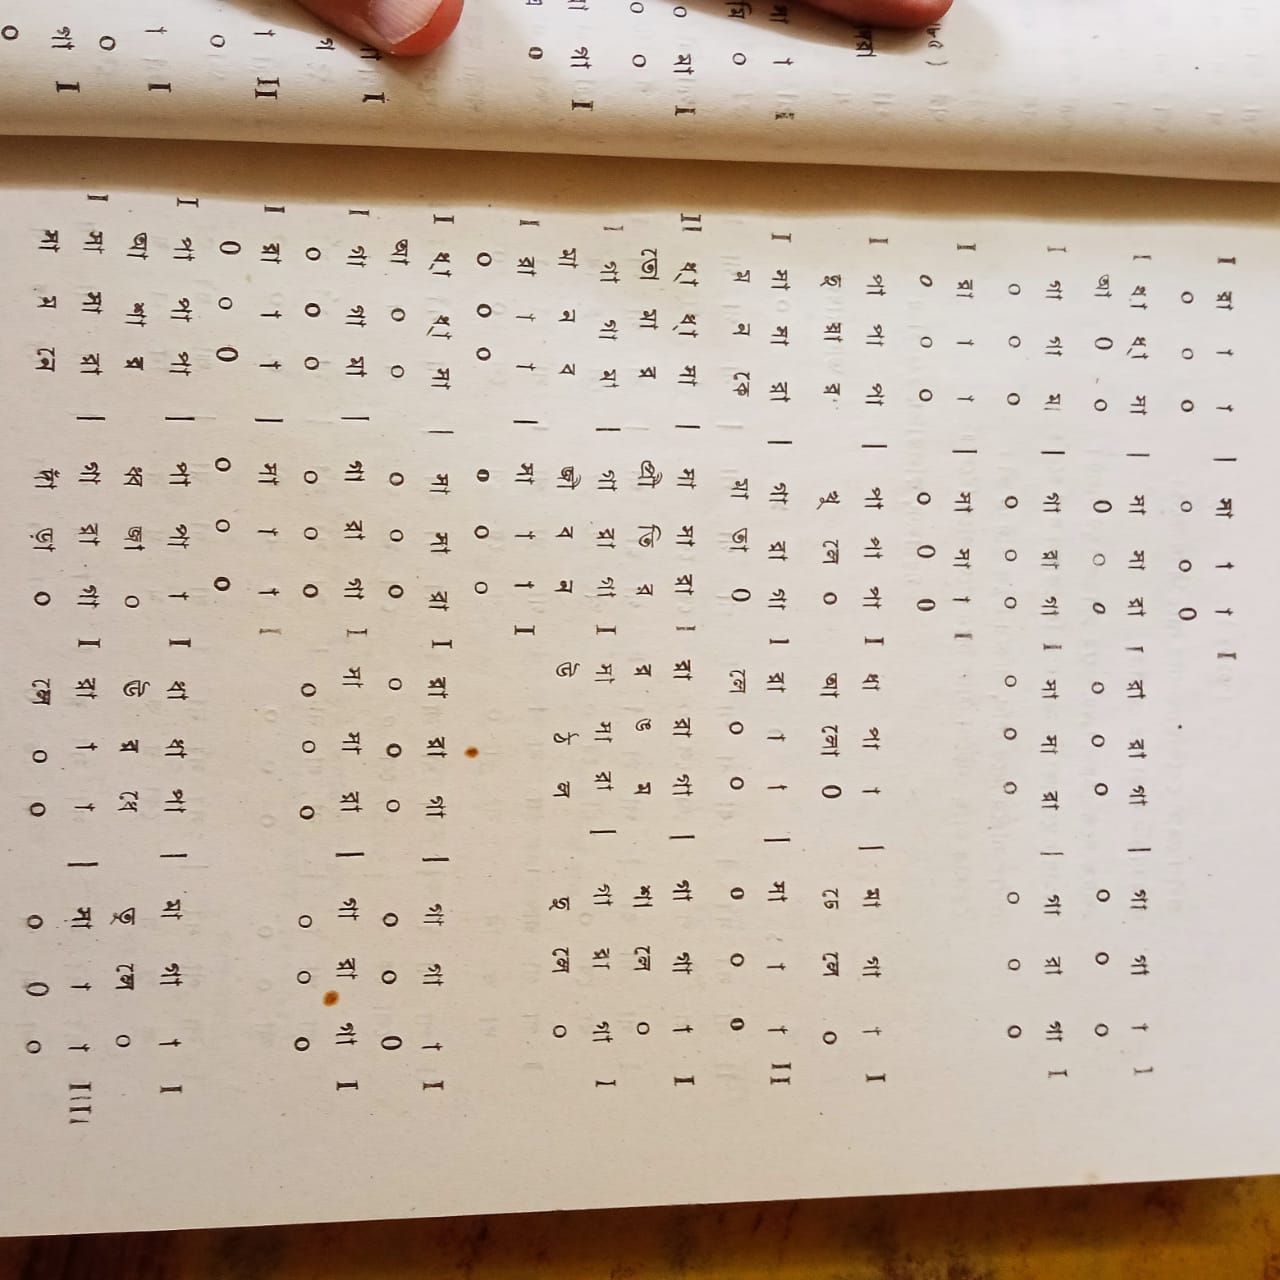 I রা † † | সা † † I
০ ০ ০ ০ ০ ০
I ধ্া ধ্া সা | সা সা রা I রা রা গা | গা গা † I
আ ০ ০ ০ ০ ০ ০ ০ ০ ০ ০ ০
I গা গা মা | গা রা গা I সা সা রা | গা রা গা I
০ ০ ০ ০ ০ ০ ০ ০ ০ ০ ০ ০
I রা † † | সা সা † I
০ ০ ০ ০ ০ ০
I পা পা পা | পা পা পা I ধা পা † | মা গা † I
দু য়া র খু লে ০ আ লো ০ ঢে লে ০
I মা মা রা | গা রা গা I রা † † | সা † † II
ম ন কে মা তা ০ লে ০ ০ ০ ০ ০
II ধ্া ধ্া সা | সা সা রা I রা রা গা | গা গা † I
তো মা র প্রী তি র র ঙ ম শা লে ০
I গা গা মা | গা রা গা I সা সা রা | গা রা গা I
মা ন ব জী ব ন উ ঠ ল দু লে ০
I রা † † | সা † † I
০ ০ ০ ০ ০ ০
I ধ্া ধ্া সা | সা সা রা I রা রা গা | গা গা † I
আ ০ ০ ০ ০ ০ ০ ০ ০ ০ ০ ০
I গা গা মা | গা রা গা I সা সা রা | গা রা গা I
০ ০ ০ ০ ০ ০ ০ ০ ০ ০ ০ ০
I রা † † | সা † † I
০ ০ ০ ০ ০ ০
I পা পা পা | পা পা † I ধা ধা পা | মা গা † I
আ শা র ধ্ব জা ০ উ র ধে তু লে ০
I মা মা রা | গা রা গা I রা † † | সা † † IIII
সা ম নে দাঁ ড়া ০ লে ০ ০ ০ ০ ০